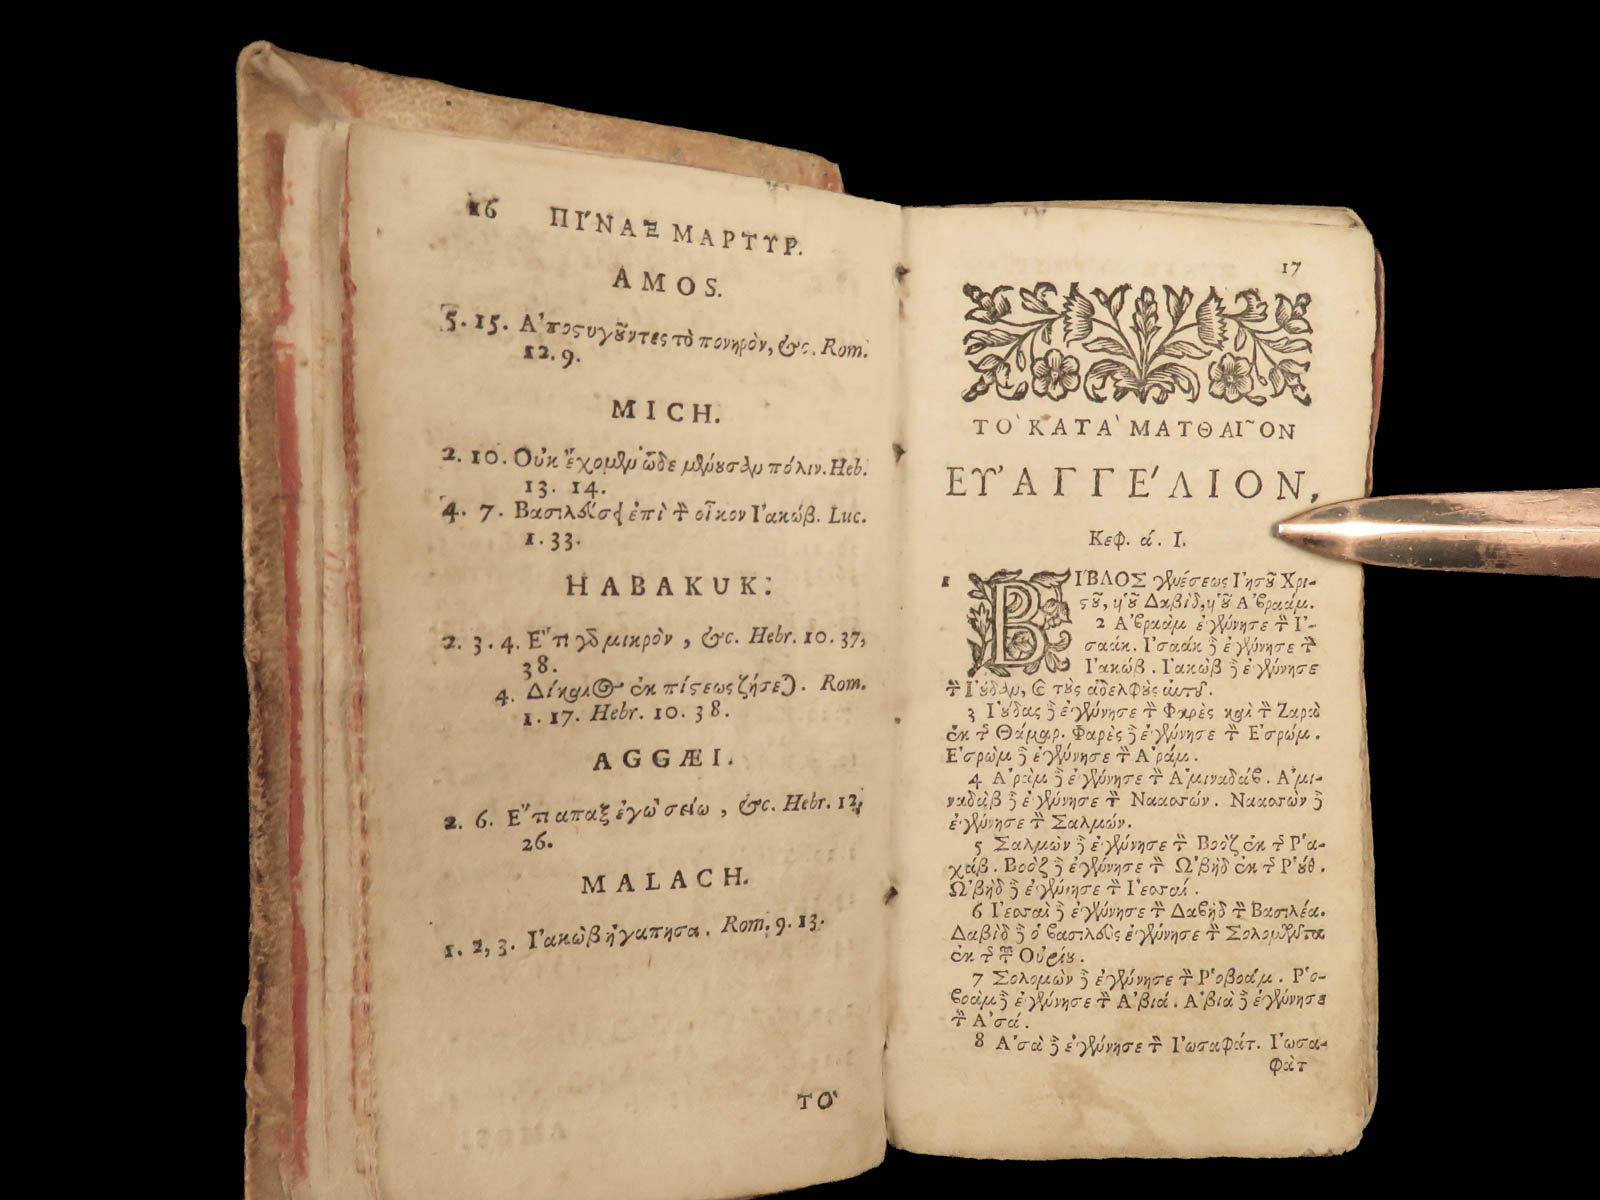 16 ΠΙ´ΝΑΞ ΜΑΡΤΥΡ.
AMOS.
5. 15. Α᾿ποςυγοῦντες τὸ πονηρὸν, &c. Rom.
12. 9.
MICH.
2. 10. Οὐκ ἔχομεν ὧδε μένουσαν πόλιν. Heb.
13. 14.
4. 7. Βασιλεύσει ἐπὶ τὸν οἶκον Ι᾿ακώβ. Luc.
1. 33.
HABAKUK.
2. 3. 4. Ε῎τι γὰρ μικρὸν, &c. Hebr. 10. 37,
38.
4. Δίκαιος ἐκ πίστεως ζήσεται. Rom.
1. 17. Hebr. 10. 38.
AGGÆI.
2. 6. Ε῎τι απαξ ἐγὼ σείω, &c. Hebr. 12,
26.
MALACH.
1. 2, 3. Ι᾿ακὼβ ἠγαπησα. Rom. 9. 13.
ΤΟ`
17
ΤΟ` ΚΑΤΑ` ΜΑΤΘΑΙ῀ΟΝ
ΕΥ᾿ΑΓΓΕ´ΛΙΟΝ,
Κεφ. ά. Ι.
1 ΒΙ´ΒΛΟΣ γενέσεως Ι᾿ησοῦ Χρι-
στοῦ, υἱοῦ Δαβὶδ, υἱοῦ Α᾿βραάμ.
2 Α᾿βραὰμ ἐγέννησε τὸν Ι᾿-
σαάκ. Ι᾿σαὰκ δὲ ἐγέννησε τὸν
Ι᾿ακώβ. Ι᾿ακὼβ δὲ ἐγέννησε
τὸν Ι᾿ούδαν, καὶ τοὺς ἀδελφοὺς αὐτοῦ.
3 Ι᾿ούδας δὲ ἐγέννησε τὸν Φαρὲς καὶ τὸν Ζαρὰ
ἐκ τῆς Θάμαρ. Φαρὲς δὲ ἐγέννησε τὸν Ε᾿σρώμ.
Ε᾿σρὼμ δὲ ἐγέννησε τὸν Α᾿ράμ.
4 Α᾿ρὰμ δὲ ἐγέννησε τὸν Α᾿μιναδάβ. Α᾿μι-
ναδὰβ δὲ ἐγέννησε τὸν Ναασσών. Ναασσὼν δὲ
ἐγέννησε τὸν Σαλμών.
5 Σαλμὼν δὲ ἐγέννησε τὸν Βοὸζ ἐκ τῆς Ρ῾α-
χάβ. Βοὸζ δὲ ἐγέννησε τὸν Ω᾿βὴδ ἐκ τῆς Ρ῾ούθ.
Ω᾿βὴδ δὲ ἐγέννησε τὸν Ι᾿εσσαί.
6 Ι᾿εσσαὶ δὲ ἐγέννησε τὸν Δαβὶδ τὸν Βασιλέα.
Δαβὶδ δὲ ὁ βασιλεὺς ἐγέννησε τὸν Σολομῶντα
ἐκ τῆς τοῦ Οὐρίου.
7 Σολομὼν δὲ ἐγέννησε τὸν Ρ῾οβοάμ. Ρ῾ο-
βοὰμ δὲ ἐγέννησε τὸν Α᾿βιά. Α᾿βιὰ δὲ ἐγέννησε
τὸν Α᾿σά.
8 Α᾿σὰ δὲ ἐγέννησε τὸν Ι᾿ωσαφάτ. Ι᾿ωσα-
φὰτ